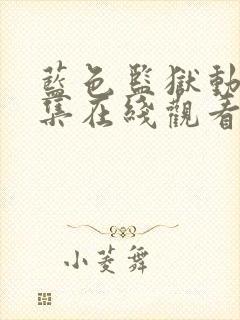 藍色監獄動
集在綫觀看
小菱舞